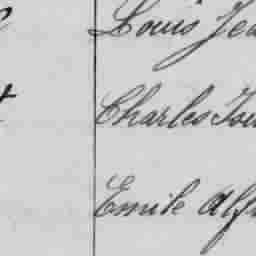 Louis Jea
Charles Tou
Emile Alf